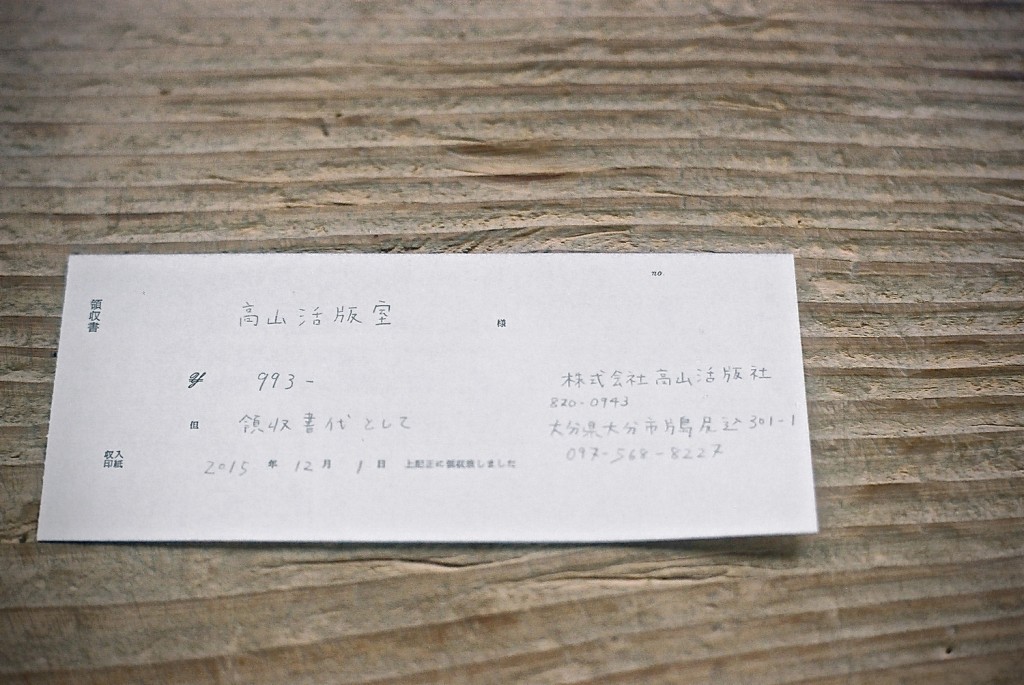 no.
領収書
高山活版室 様
¥ 993-
但 領収書代として
収入印紙
2015 年 12 月 1 日 上記正に領収致しました
株式会社高山活版社
820-0943
大分県大分市片島尻込301-1
097-568-8227